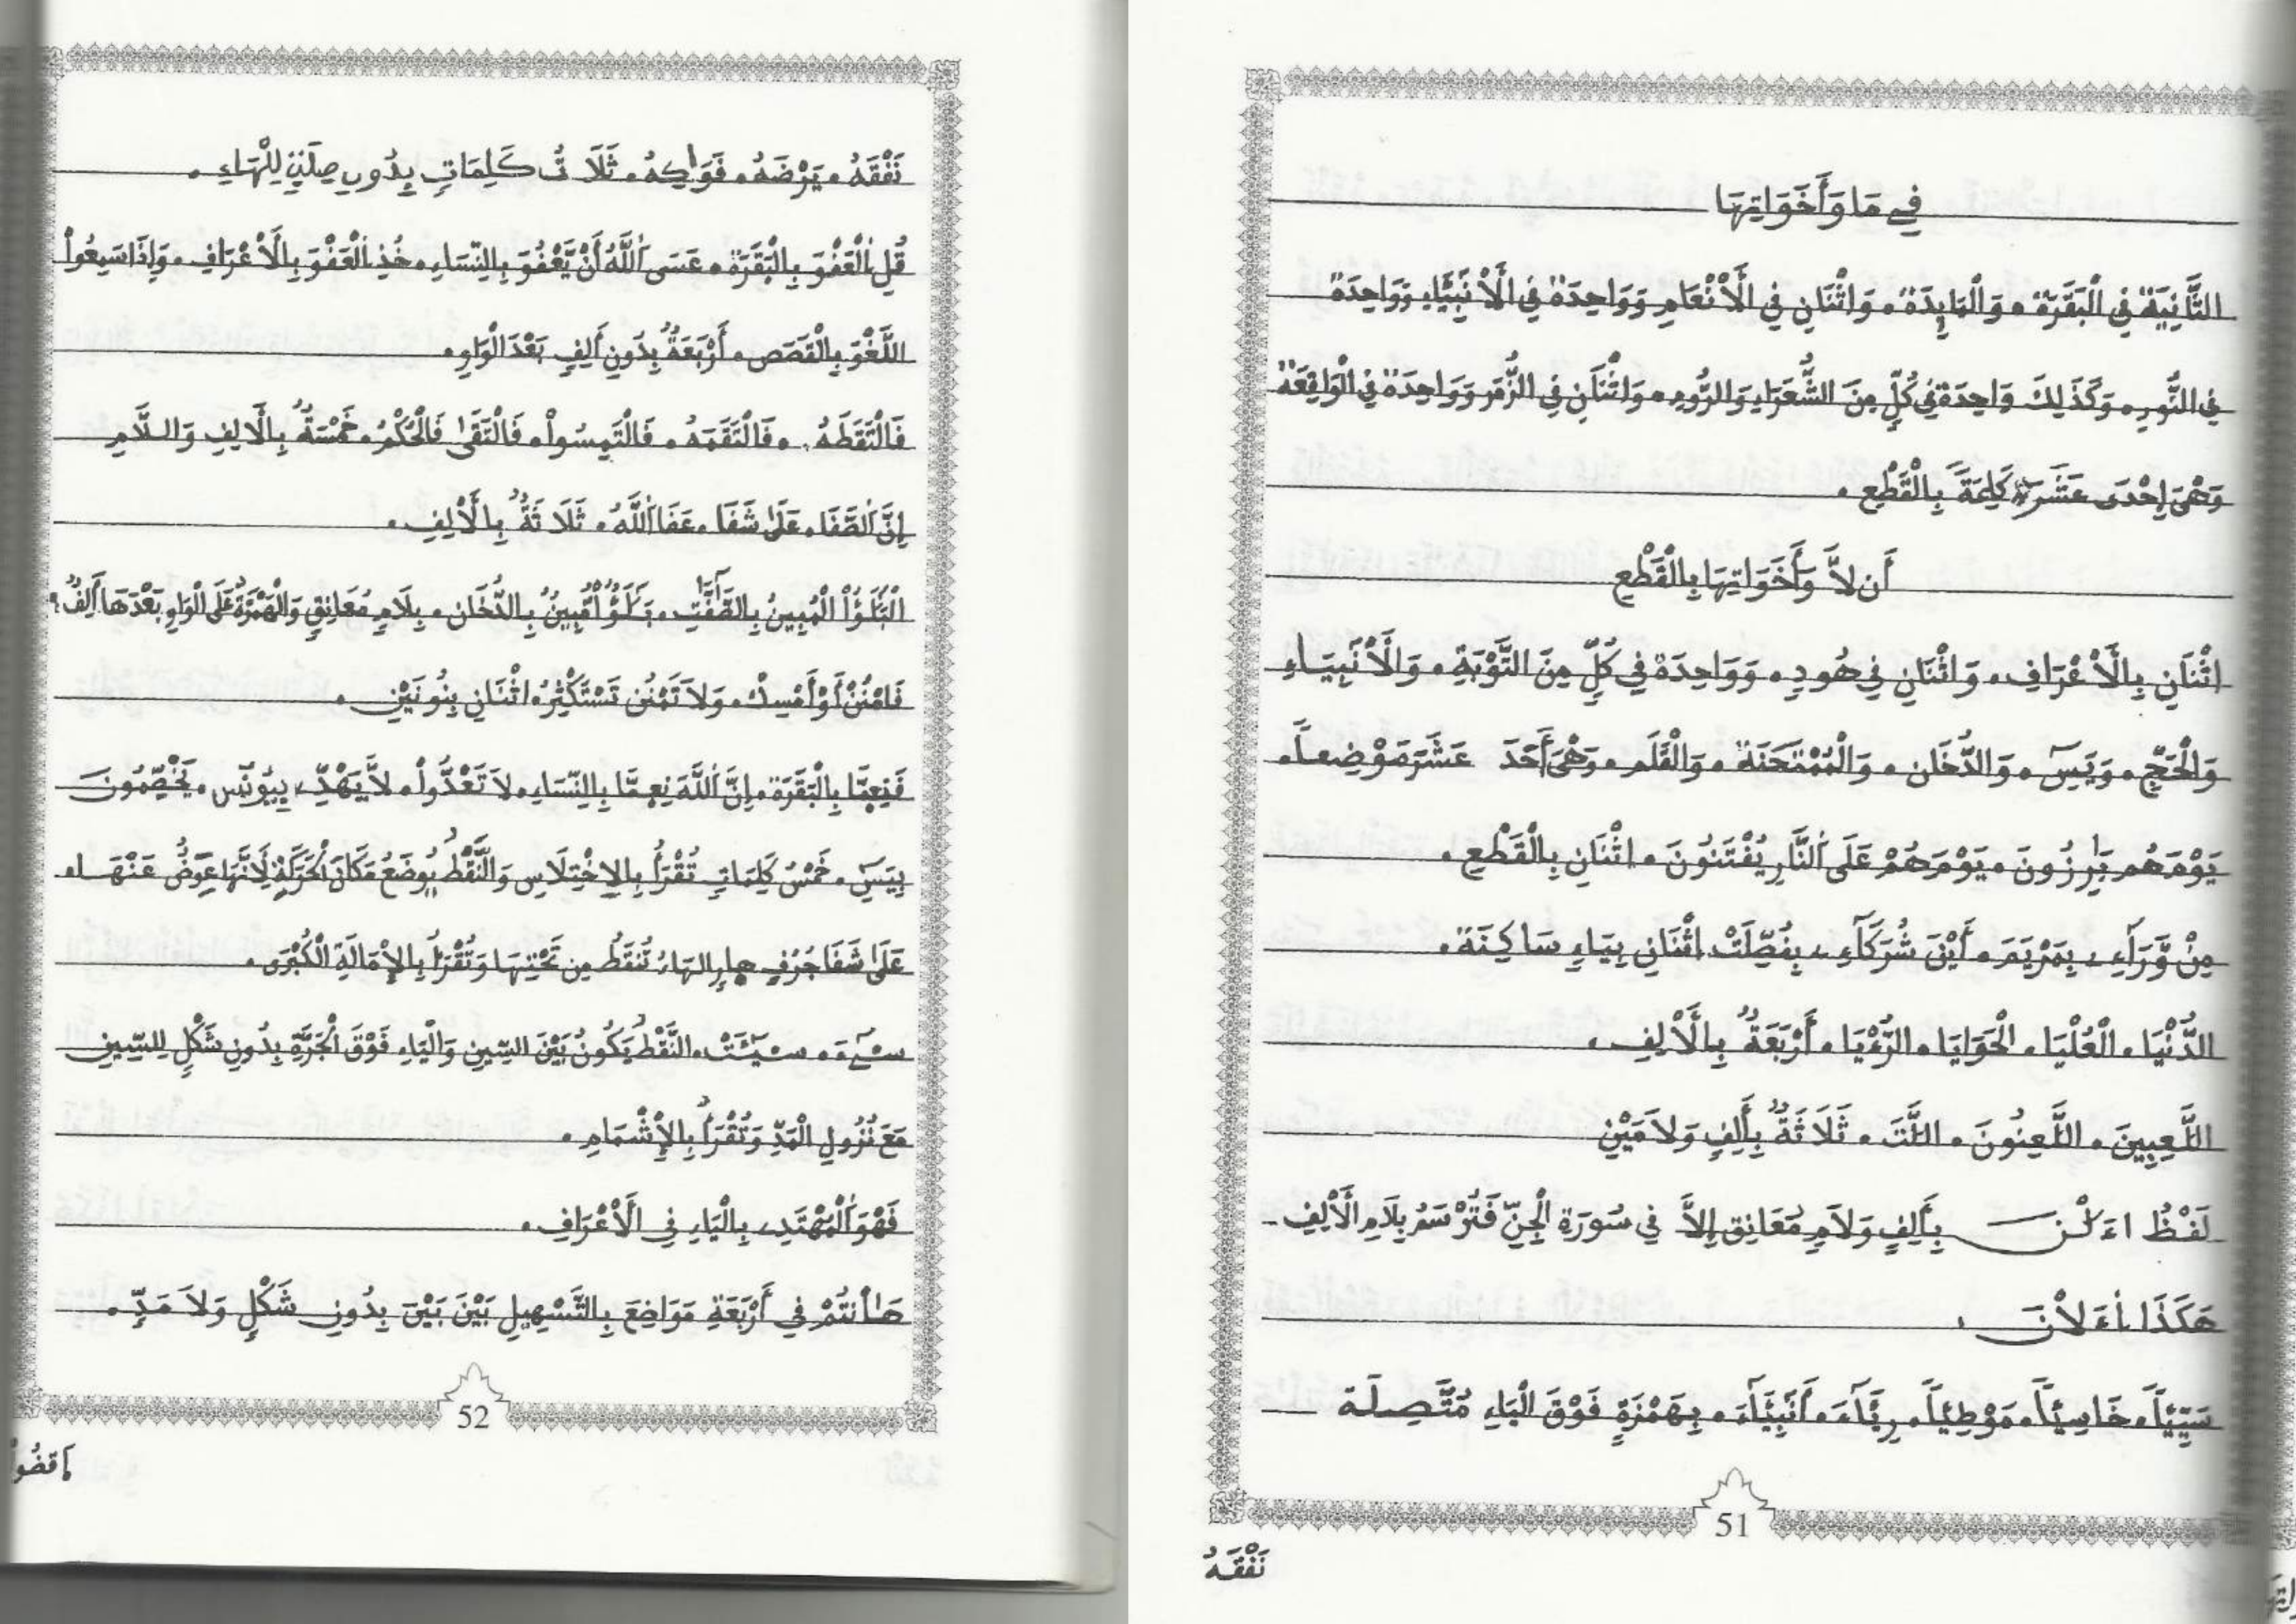 فِي مَا وَأَخَوَاتِهَا
الثَّانِيَةُ فِي الْبَقَرَةِ . وَالْمَايِدَةِ . وَاثْنَانِ فِي الْأَنْعَامِ وَوَاحِدَةٌ فِي الْأَنْبِيَّاءِ وَوَاحِدَةٌ
فِي النُّورِ . وَكَذَلِكَ وَاحِدَةٌ فِي كُلٍّ مِنَ الشُّعَرَاءِ وَالرُّومِ . وَاثْنَانِ فِي الزُّمَرِ وَوَاحِدَةٌ فِي الْوَاقِعَةِ
وَهْيَ إِحْدَى عَشَرَةَ كَلِمَةً بِالْقَطْعِ .
أَن لاَّ وَأَخَوَاتِهَا بِالْقَطْعِ
اثْنَانِ بِالْأَعْرَافِ . وَاثْنَانِ فِي هُودٍ . وَوَاحِدَةٌ فِي كُلٍّ مِنَ التَّوْبَةِ . وَالْأَنْبِيَاءِ
وَالْحَجِّ . وَيَسَ . وَالدُّخَان . وَالْمُمْتَحَنَة . وَالْقَلَم . وَهْيَ أَحَدَ عَشَرَ مَوْضِعاً .
يَوْمَ هُم بَٰرِزُونَ . يَوْمَ هُمْ عَلَى النَّارِ يُفْتَنُونَ . اثْنَانِ بِالْقَطْعِ .
مِنْ وَّرَآءِے بِمَرْيَمَ . أَيْنَ شُرَكَآءِے بِفُصِّلَتْ اثْنَانِ بِيَاءٍ سَاكِنَة .
الدُّنْيَا . الْعُلْيَا . الْحَوَايَا . الرُّءْيَا . أَرْبَعَةٌ بِالْأَلِفِ .
اللَّعِبِينَ . اللَّعِنُونَ . اللَّتَ . ثَلَاثَةٌ بِأَلِفٍ وَلاَمَيْنِ
لَفْظُ اءَلْنَ بِأَلِفٍ وَلاَمٍ مُعَانِقٍ إِلاَّ فِي سُورَةِ الْجِنِّ فَتُرْسَمُ بِلاَمِ الْأَلِفِ
هَكَذَا اءَلاْنَ .
سَيِّيـاً . خَاسِيـاً . مَوْطِيـاً . رِيَّآءَ . أَنْبِيَآءَ . بِهَمْزَةٍ فَوْقَ الْيَاءِ مُتَّصِلَة
51
نَفْقَهُ
نَفْقَهُ . يَرْضَهُ . فَوَٰكِهُ . ثَلَاثُ كَلِمَاتٍ بِدُونِ صِلَةٍ لِلْهَاءِ .
قُلِ الْعَفْوَ بِالْبَقَرَة . عَسَى اللَّهُ أَنْ يَّعْفُوَ بِالنِّسَاءِ . خُذِ الْعَفْوَ بِالْأَعْرَافِ . وَإِذَا سَمِعُواْ
اللَّغْوَ بِالْقَصَصِ . أَرْبَعَةٌ بِدُونِ أَلِفٍ بَعْدَ الْوَاوِ .
فَالْتَقَطَهُ . فَالْتَقَمَهُ . فَالْتَمِسُواْ . فَالْتَقَى فَالْحُكْمُ . خَمْسَةٌ بِالْأَلِفِ وَاللاَّمِ
إِنَّ الصَّفَا . عَلَى شَفَا . عَفَا اللَّهُ . ثَلاَثَةٌ بِالْأَلِفِ .
الْبَلَٰؤُاْ الْمُبِينُ بِالصَّٰٓفَّٰتِ . بَلَٰؤٌاْ مُّبِينٌ بِالدُّخَان . بِلاَمٍ مُعَانِقٍ وَالْهَمْزَةُ عَلَى الْوَاوِ بَعْدَهَا أَلِفٌ
فَامْنُنْ أَوْ أَمْسِكْ . وَلاَ تَمْنُن تَسْتَكْثِرُ . اثْنَانِ بِنُونَيْنِ .
فَنِعِمَّا بِالْبَقَرَة . إِنَّ اللَّهَ نِعِمَّا بِالنِّسَاءِ . لاَ تَعْدُّواْ . لاَّ يَهْدِّے بِيُونُس . يَخْصِّمُونَ
بِيَسَ . خَمْسُ كَلِمَاتٍ تُقْرَأُ بِالاِخْتِلَاسِ وَالنَّقْطُ يُوضَعُ مَكَانَ الْحَرَكَةِ لِأَنَّهَا عِوَضٌ عَنْهَا .
عَلَى شَفَا جُرُفٍ هارٍ الهَاءُ تُنقَطُ مِن تَحْتِهَا وَتُقْرَأُ بِالْإِمَالَةِ الْكُبْرَى .
سِےٓءَ . سِيٓـَٔتْ . النَّقْطُ يَكُونُ بَيْنَ السِّينِ وَالْيَاءِ فَوْقَ الْجَرَّةِ بِدُونِ شَكْلٍ لِلسِّينِ
مَعَ نُزُولِ الْمَدِّ وَتُقْرَأُ بِالْإِشْمَامِ .
فَهْوَ الْمُهْتَدِے بِالْيَاءِ فِي الْأَعْرَافِ .
هَٰأَنتُمْ فِي أَرْبَعَةِ مَوَاضِعَ بِالتَّسْهِيلِ بَيْنَ بَيْنَ بِدُونِ شَكْلٍ وَلاَ مَدٍّ .
52